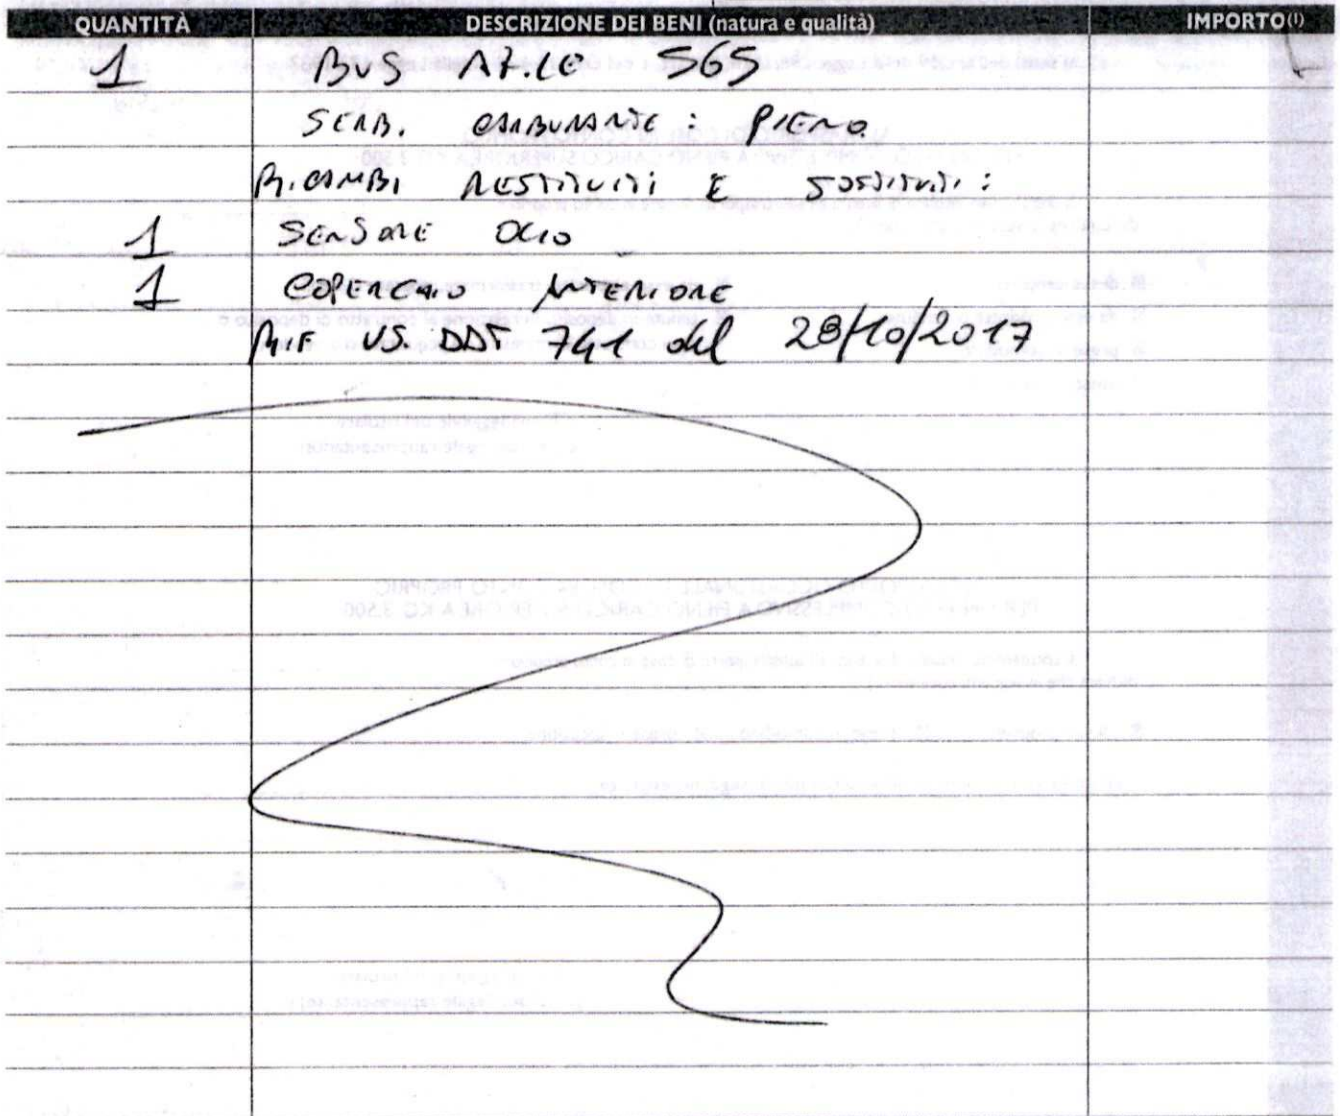 QUANTITÀ DESCRIZIONE DEI BENI (natura e qualità) IMPORTO(1)
1 BUS AZ.LE 565
SERB. CARBURANTE: PIENO
RICAMBI RESTITUITI E SOSTITUITI:
1 SENSORE OLIO
1 COPERCHIO ANTERIORE
RIF VS. DDT 741 del 28/10/2017